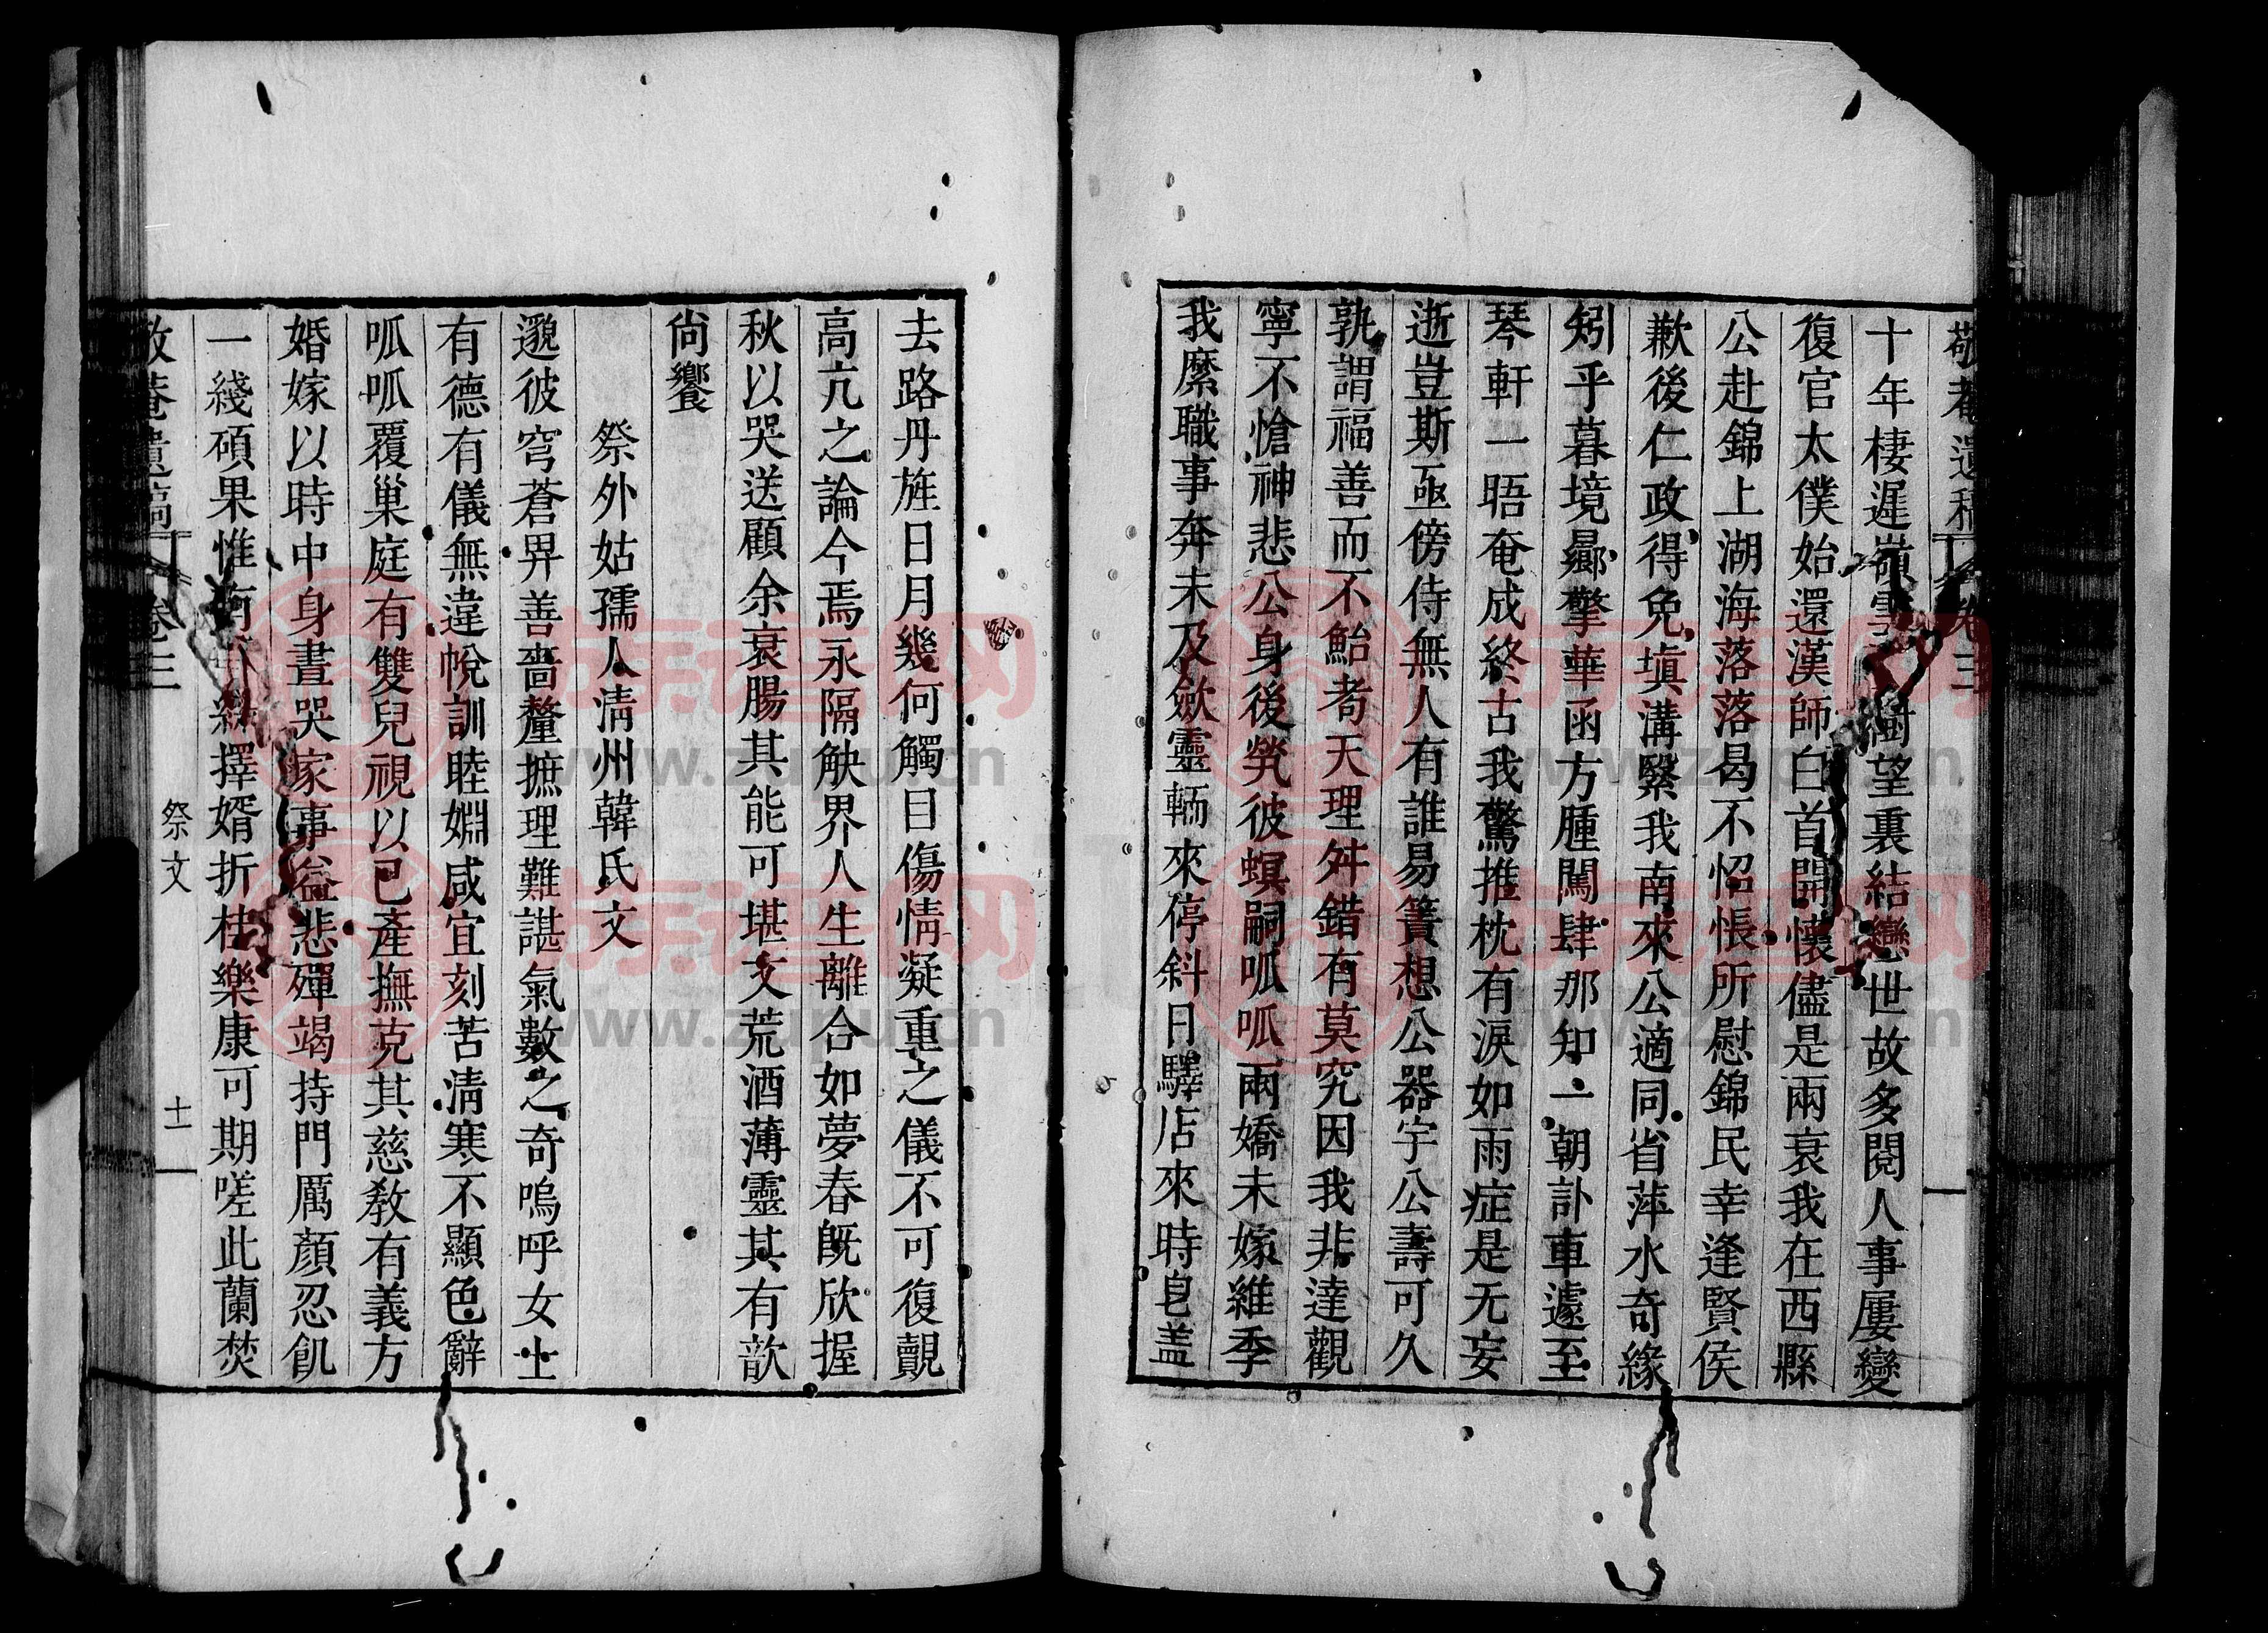 敬菴遺稿 卷三
十年棲遲嶺雲 樹望裏結戀世故多閱人事屢變
復官太僕始還漢師白首開懷儘是兩衰我在西縣
公赴錦上湖海落落曷不怊悵所慰錦民幸逢賢侯
歉後仁政得免塡溝繄我南來公適同省萍水奇緣
矧乎暮境鄰擎華函方腫闖肆那知一朝訃車遽至
琴軒一晤奄成終古我驚推枕有淚如雨症是无妄
逝豈斯亟傍侍無人有誰易簀想公器宇公壽可久
孰謂福善而不鮐耇天理舛錯有莫究因我非達觀
寧不愴神悲公身後煢彼螟嗣呱呱兩嬌未嫁維季
我縻職事奔未及斂靈輀來停斜日驛店來時皂盖
去路丹旌日月幾何觸目傷情凝重之儀不可復覿
高亢之論今焉永隔觖界人生離合如夢春旣欣握
秋以哭送顧余衰腸其能可堪文荒酒薄靈其有歆
尙饗
祭外姑孺人淸州韓氏文
邈彼穹蒼畀善嗇釐摭理難諶氣數之奇嗚呼女士
有德有儀無違帨訓睦婣咸宜刻苦淸寒不顯色辭
呱呱覆巢庭有雙兒視以已產撫克其慈敎有義方
婚嫁以時中身晝哭家事益悲殫竭持門厲顏忍飢
一綫碩果惟 擇婿折桂樂康可期嗟此蘭焚
敬菴遺稿 卷三 祭文 十一
族谱网
www.zupu.cn
族谱网
www.zupu.cn
族谱网
www.zupu.cn
族谱网
www.zupu.cn